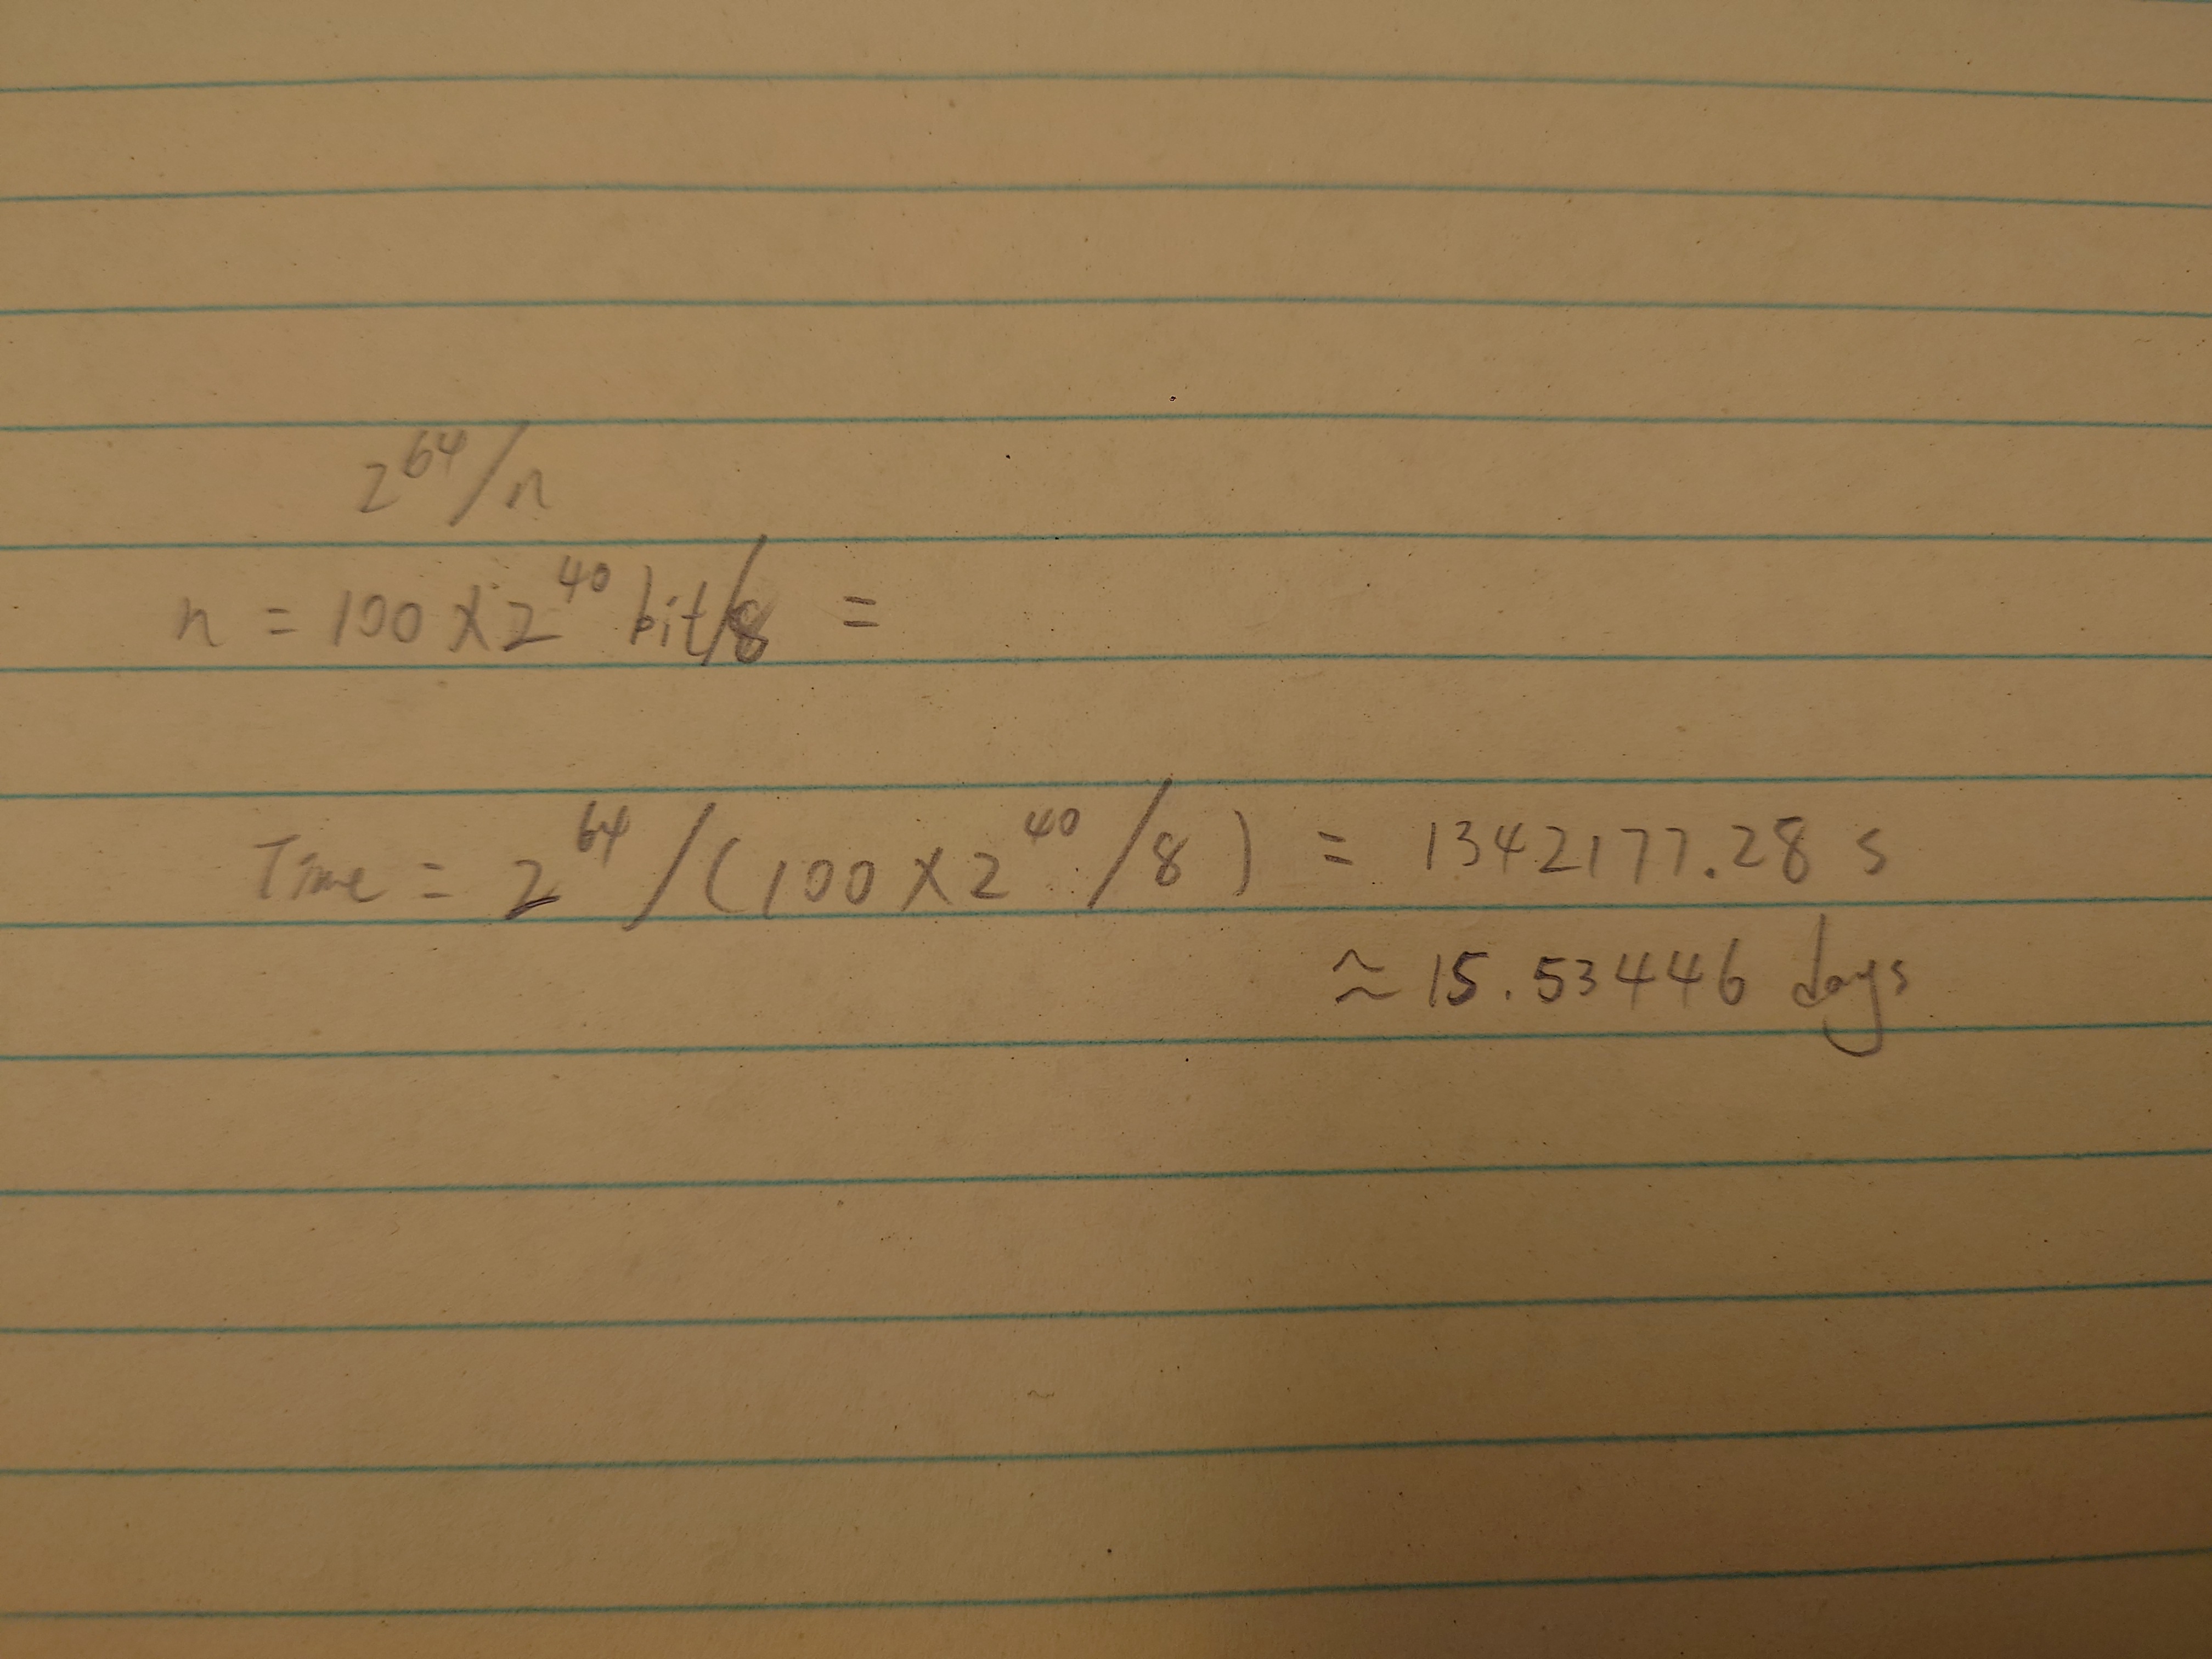 2^64/n
n = 100 × 2^40 bit/8 =
Time = 2^64/(100 × 2^40/8) = 1342177.28 s
≈ 15.53446 days